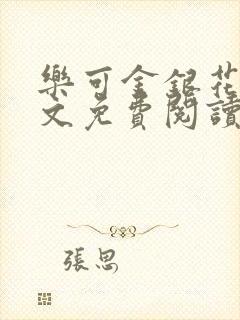 樂可金銀花
文免費閱讀
張思